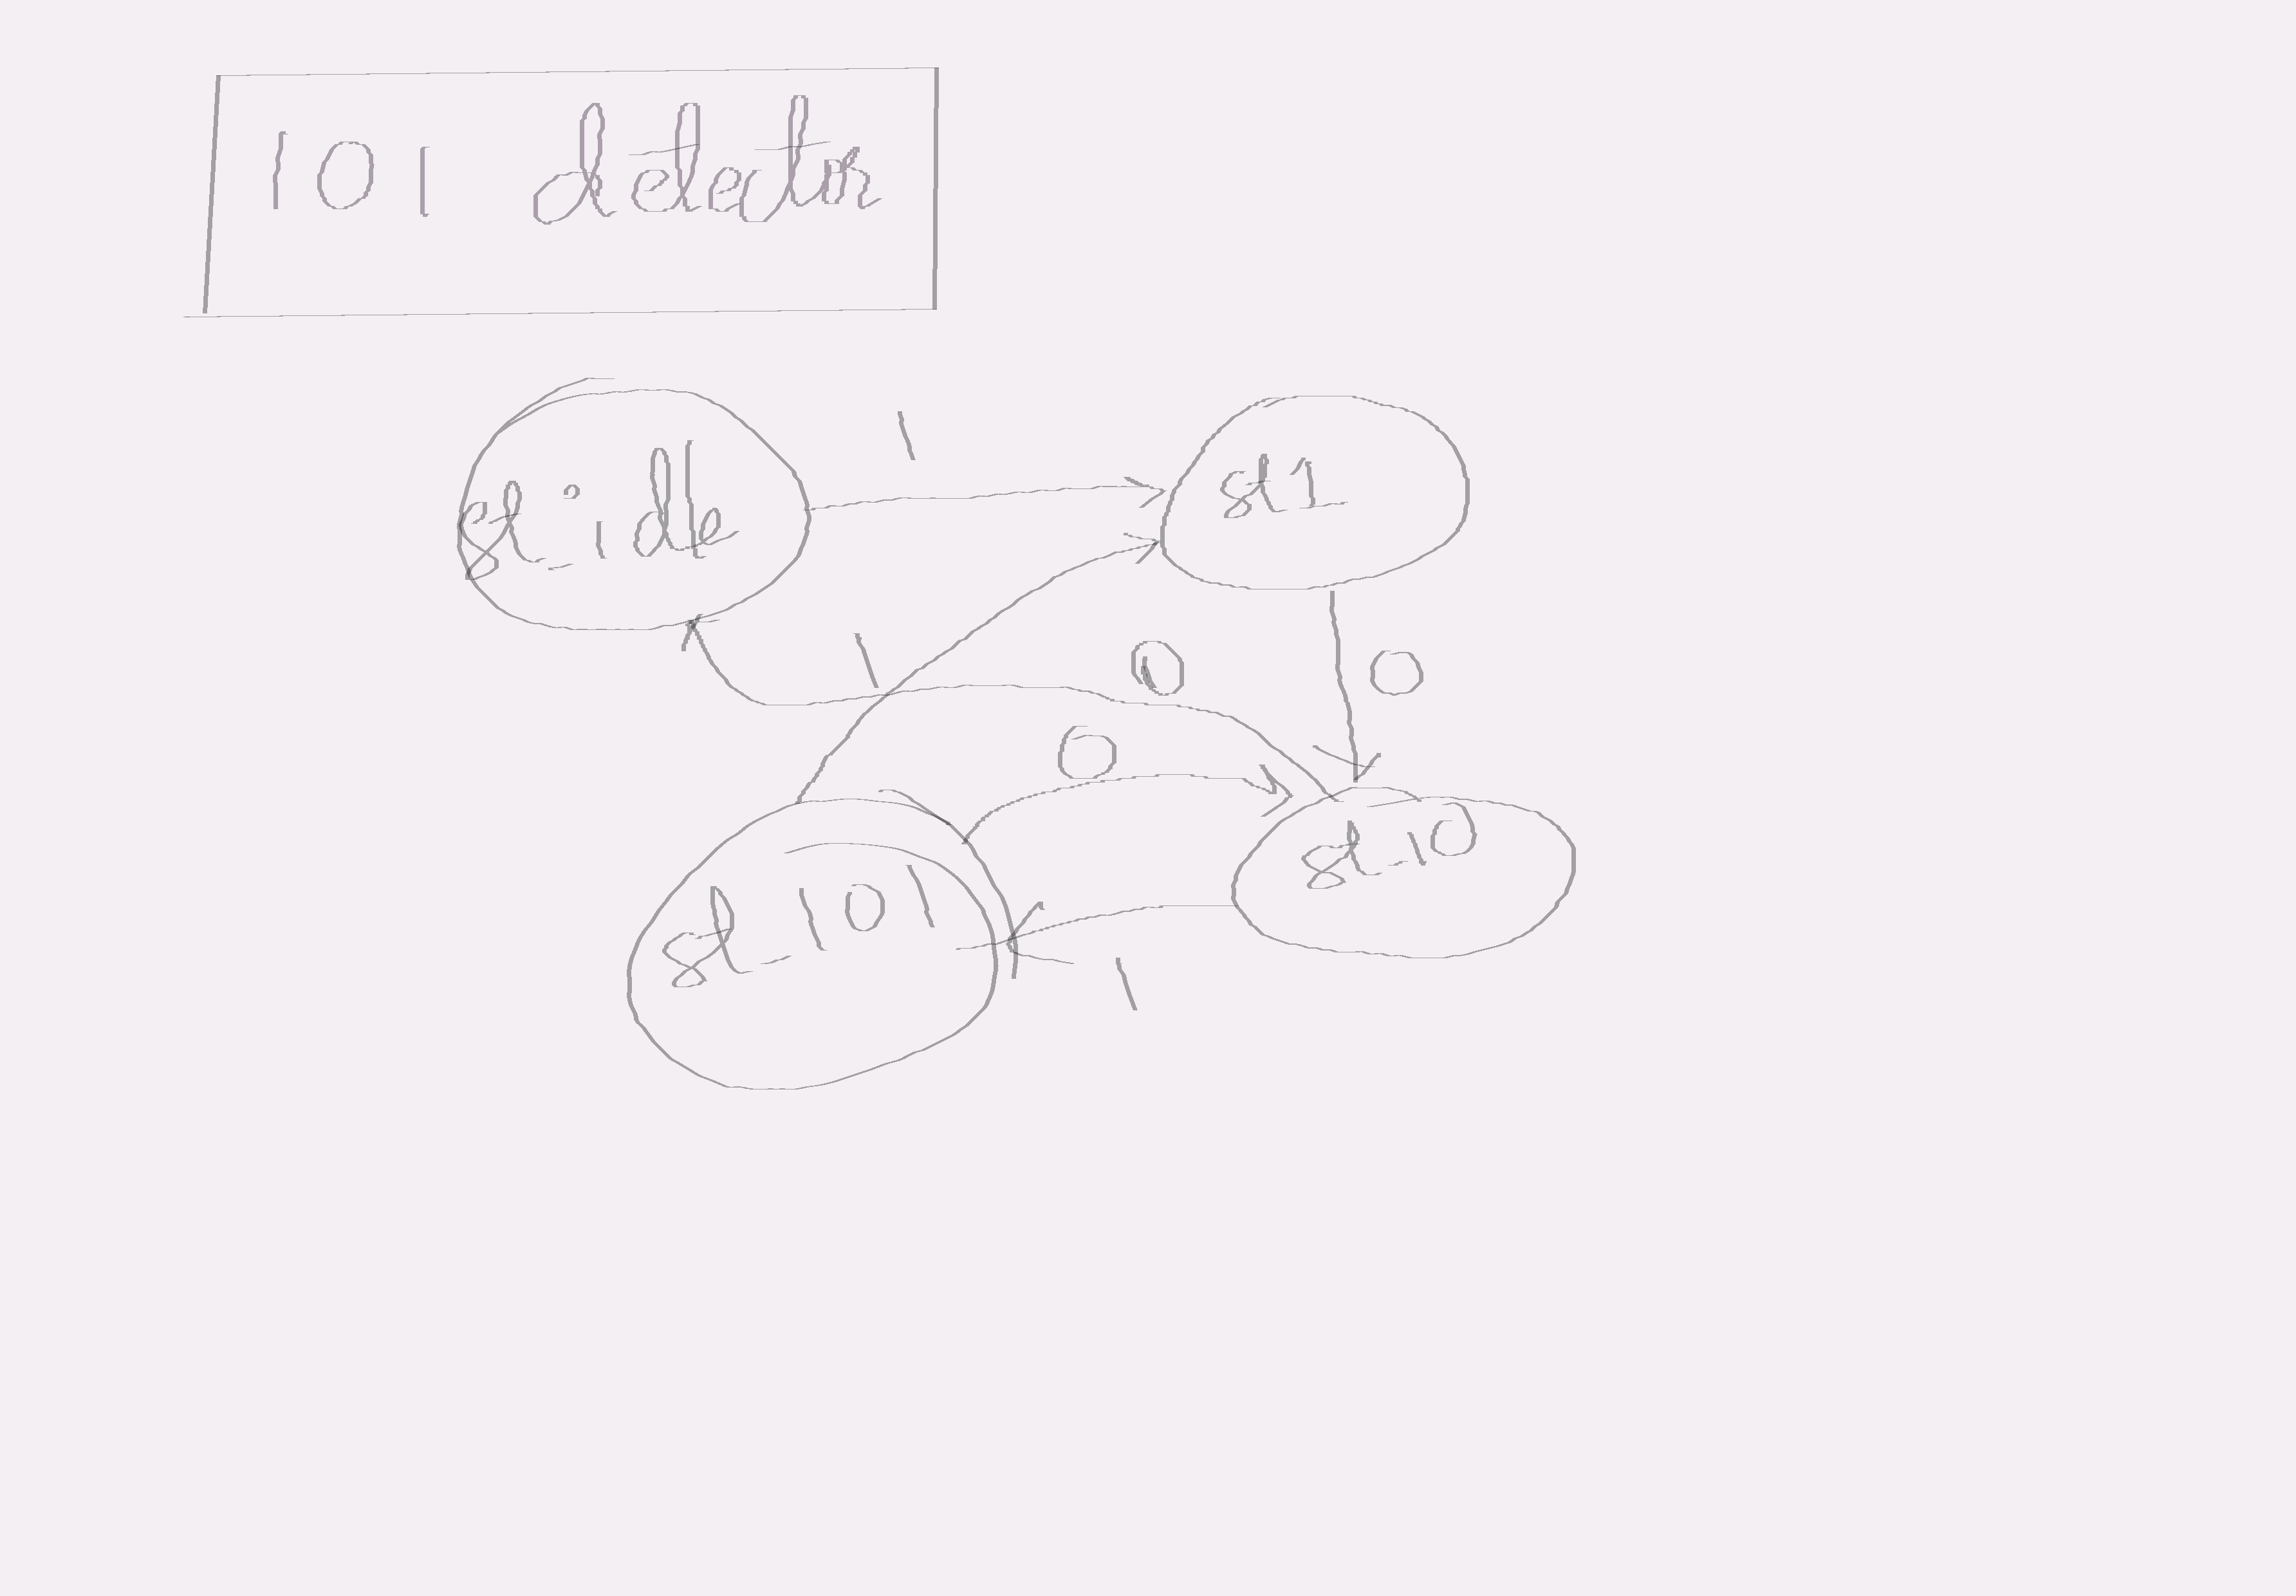 101 detector
1
st_idle
st1
1
0
0
0
st_10
st_101
1